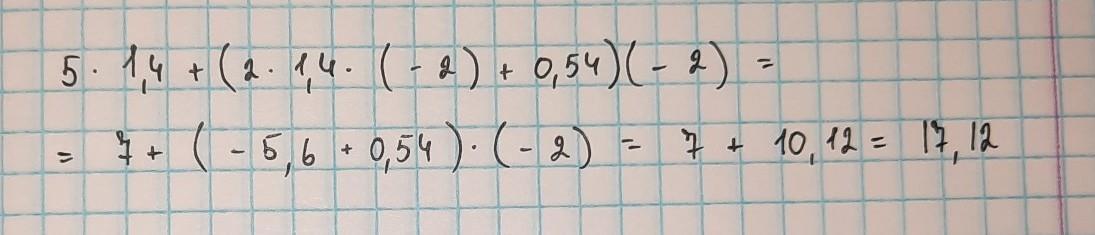 5 · 1,4 + (2 · 1,4 · (- 2) + 0,54)(- 2) =
= 7 + (- 5,6 + 0,54) · (- 2) = 7 + 10,12 = 17,12